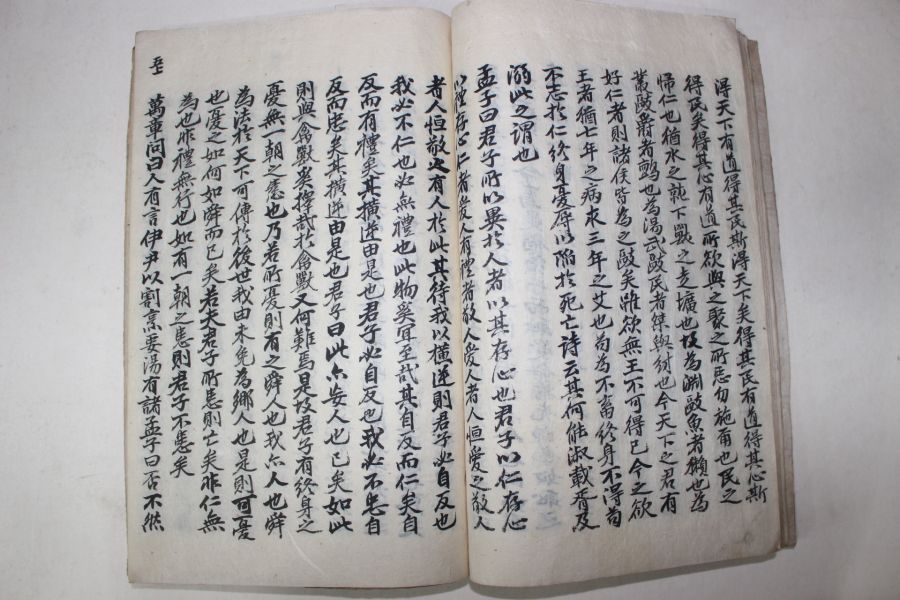 得天下有道得其民斯得天下矣得其民有道得其心斯
得民矣得其心有道所欲與之聚之所惡勿施甫也民之
歸仁也猶水之就下獸之走壙也故為淵敺魚者獺也為
叢敺爵者鸇也為湯武敺民者桀與紂也今天下之君有
好仁者則諸侯皆為之敺矣雖欲無王不可得已今之欲
王者猶七年之病求三年之艾也苟為不畜終身不得苟
不志於仁終身憂辱以陷於死亡詩云其何能淑載胥及
溺此之謂也
孟子曰君子所以異於人者以其存心也君子以仁存心
以禮存心仁者愛人有禮者敬人愛人者人恒愛之敬人
者人恒敬之有人於此其待我以橫逆則君子必自反也
我必不仁也必無禮也此物奚宜至哉其自反而仁矣自
反而有禮矣其橫逆由是也君子必自反也我必不忠自
反而忠矣其橫逆由是也君子曰此亦妄人也已矣如此
則與禽獸奚擇哉於禽獸又何難焉是故君子有終身之
憂無一朝之患也乃若所憂則有之舜人也我亦人也舜
為法於天下可傳於後世我由未免為鄉人也是則可憂
也憂之如何如舜而已矣若夫君子所患則亡矣非仁無
為也非禮無行也如有一朝之患則君子不患矣
萬章問曰人有言伊尹以割烹要湯有諸孟子曰否不然